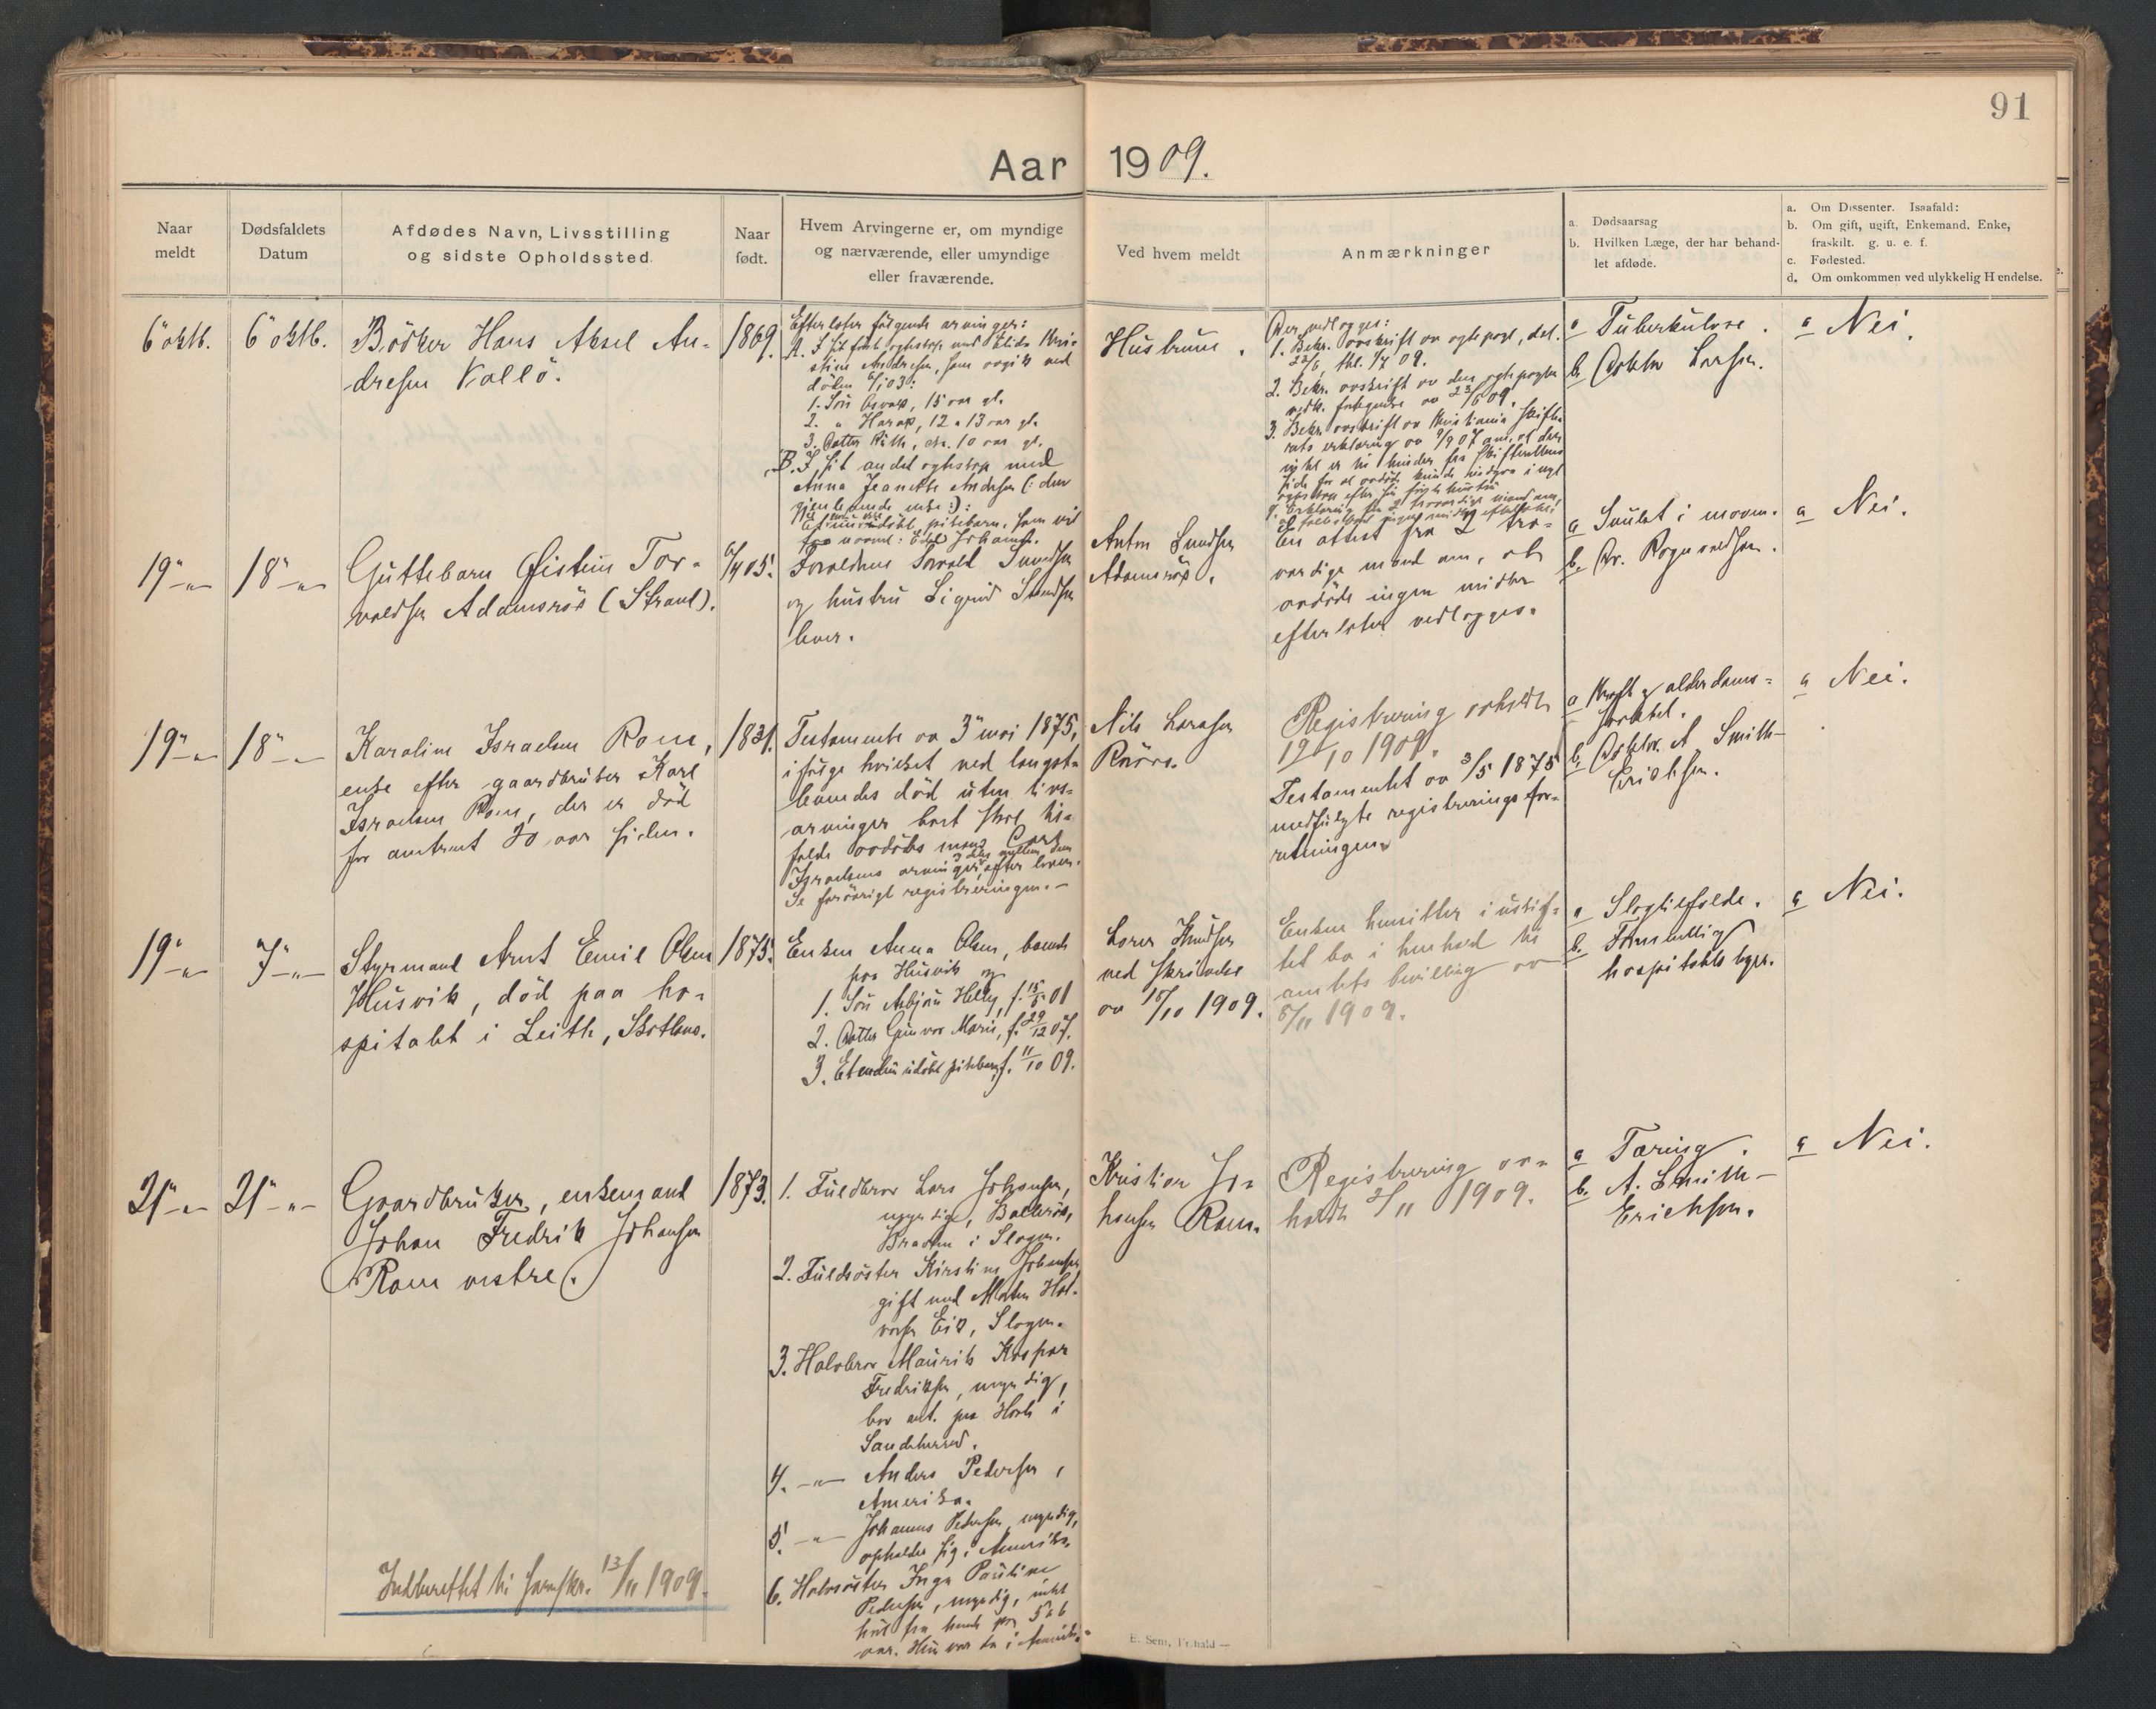 91
Aar 1909.
Naar meldt
Dødsfaldets Datum
Afdødes Navn, Livsstilling og sidste Opholdssted.
Naar født.
Hvem Arvingerne er, om myndige og nærværende, eller umyndige eller fraværende.
Ved hvem meldt
Anmærkninger
a. Dødsaarsag
b. Hvilken Læge, der har behandlet afdøde.
a. Om Dissenter. Isaafald:
b. Om gift, ugift, Enkemand, Enke, fraskilt. g. u. e. f.
c. Fødested.
d. Om omkommen ved ulykkelig Hendelse.
6" oktb.
6" oktb.
Bödker Hans Aksel An-
dresen Vallö.
1869.
Efterlater fölgende arvinger:
A. I sit förste egteskap med Kri-
stine Andresen, som avgik ved
döden 6/1 03:
1. Sön 15 aar gl.
2. " Harald, 12 a 13 aar gl.
3. Datter Ruth, ca. 10 aar gl.
B. I sit andet egteskap med
Anna Jeanette Andresen (: den
gjenlevende enke :):
Et pikebarn, som vil
Hustruen.
Der vedlægges:
1. Bekr. avskrift av egtepagt, dat.
22/6, thl. 1/7 09.
2. Bekr. avskrift av den egtepagten
vedk. av 23/6 09.
3. Bekr. avskrift av Kristiania skifte-
rets erklæring av 9/9 07 om, at der
intet er til hinder fra skifterettens
side for at avdöde kunde indgaa i nyt
egteskap efter sin förste hustru
a Tuberkulose.
b. Doktor Larsen.
a Nei.
19"-"-
18"-"-
Guttebarn Öistein Tor-
valdsen Adamsröd (Strand).
6/4 05.
Forældrene Torvald Svendsen
og hustru Sigrid Svendsen
lever.
Anton Svendsen
Adamsröd.
En attest fra 2 tro-
værdige mænd om, at
avdöde ingen midler
efterlater vedlægges.
a Svulst i maven.
b. Dr. Rognvaldsen.
a Nei.
19"-"-
18"-"-
Karoline Israelsen Rom,
enke efter gaardbruker Karl
Israelsen Rom, der er död
for omtrent 20 aar siden.
1831.
Testamente av 3" mai 1875,
ifölge hvilket ved længst-
levendes död uten livs-
arvinger boet skal til-
falde avdödes mand Carl
Israelsens arvinger, efter loven.
Se forövrigt registreringen.-
Nils Larsen
Rörvo.
Registrering avholdt
19/10 1909.
Testamentet av 3/5 1875
medfulgte registreringsfor-
retningen.
a Kræft og alderdoms-
b. Doktor A Smith-
Erichsen.
a Nei.
19"-"-
7"-"-
Styrmand Arnt Emil Olsen
Husvik, död paa ho-
spitalet i Leith, Skotland.
1875.
Enken Anna Olsen, boende
paa Husvik og
1. Sön Asbjörn Helly, f. 15/5 01
2. Datter Gunvor Marie, f. 29/12 07.
3. Et endnu udöbt pikebarn, f. 11/10 09.
Lars Knudsen
ved skrivelse
av 15/10 1909.
Enken hensitter i uskif-
tet bo i henhold til
amtets bevilling av
8/11 1909.
a Slagtilfælde.
b. Formentlig
hospitalets læger.
a Nei.
21"-"-
21"-"-
Gaardbruker, enkemand
Johan Fredrik Johansen
Rom vestre.
1873.
1. Fuldbror Lars Johansen,
myndig,
i Slagen.
2. Fuldsöster Kirstine Johansen
gift med Morten Hal-
vorsen Eik, Slagen.
3. Halvbror Maurits Kaspar
Fredriksen, myndig,
bor ant. paa i
Sandeherred.
4. -"- Anders Pedersen,
Amerika.
5. -"- Johannes Pedersen, myndig,
opholder sig i Amerika.
6. Halvsöster Inga Pauline
Pedersen, myndig, intet
hört fra hende paa 5 a 6
aar. Hun var da i Amerika.
Kristian Jo-
hansen Rom.
Registrering av-
holdt 2/11 1909.
a Tæring.
b. A. Smith-
Erichsen.
a Nei.
Indberettet til 13/11 1909.
E. Sem, Fr.hald —